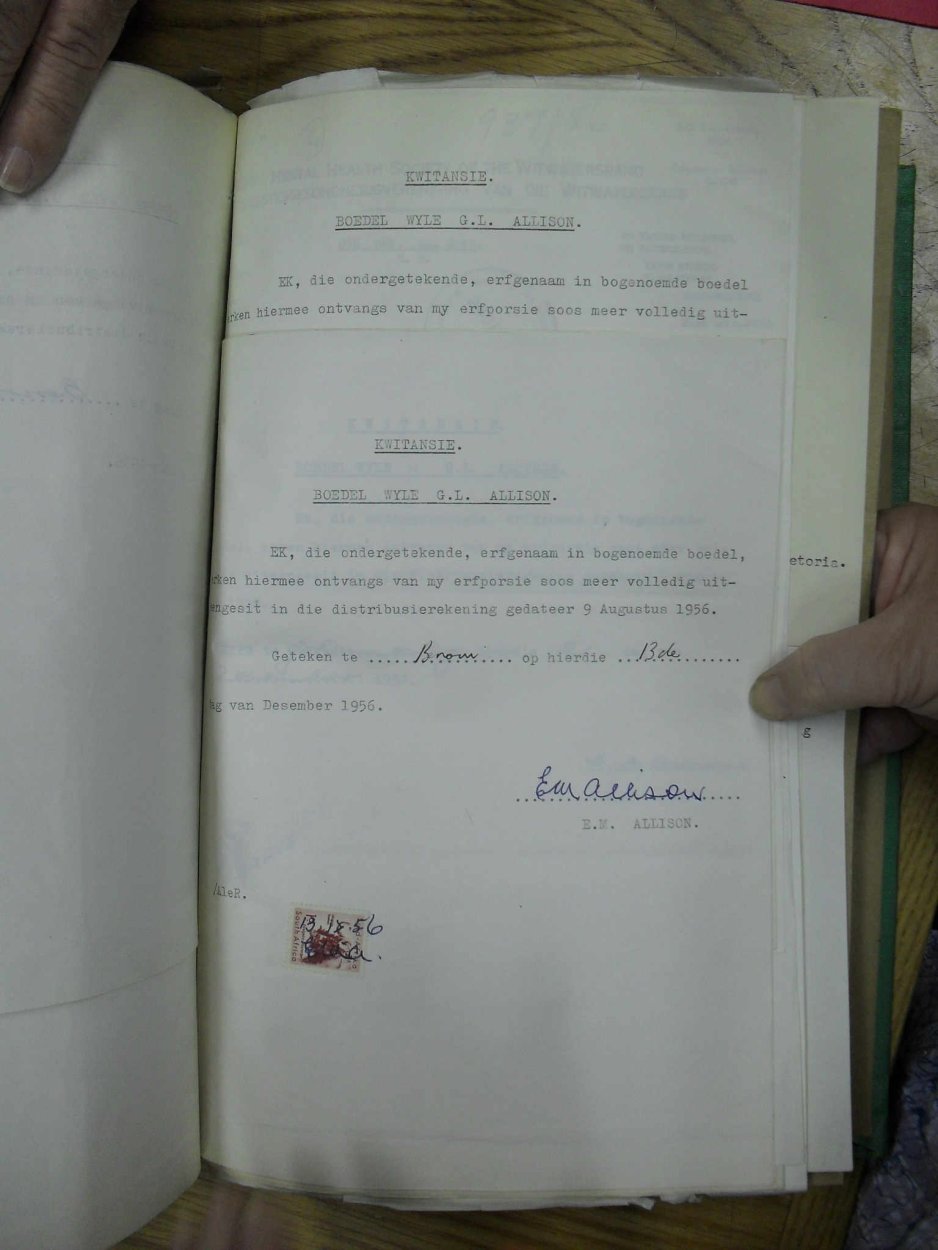 KWITANSIE.
BOEDEL WYLE G.L. ALLISON.
EK, die ondergetekende, erfgenaam in bogenoemde boedel
rken hiermee ontvangs van my erfporsie soos meer volledig uit-
KWITANSIE.
BOEDEL WYLE G.L. ALLISON.
EK, die ondergetekende, erfgenaam in bogenoemde boedel,
rken hiermee ontvangs van my erfporsie soos meer volledig uit-
engesit in die distribusierekening gedateer 9 Augustus 1956.
Geteken te ............ op hierdie ...13de............
ag van Desember 1956.
EM Allison
E.M. ALLISON.
/AleR.
South Africa
etoria.
g